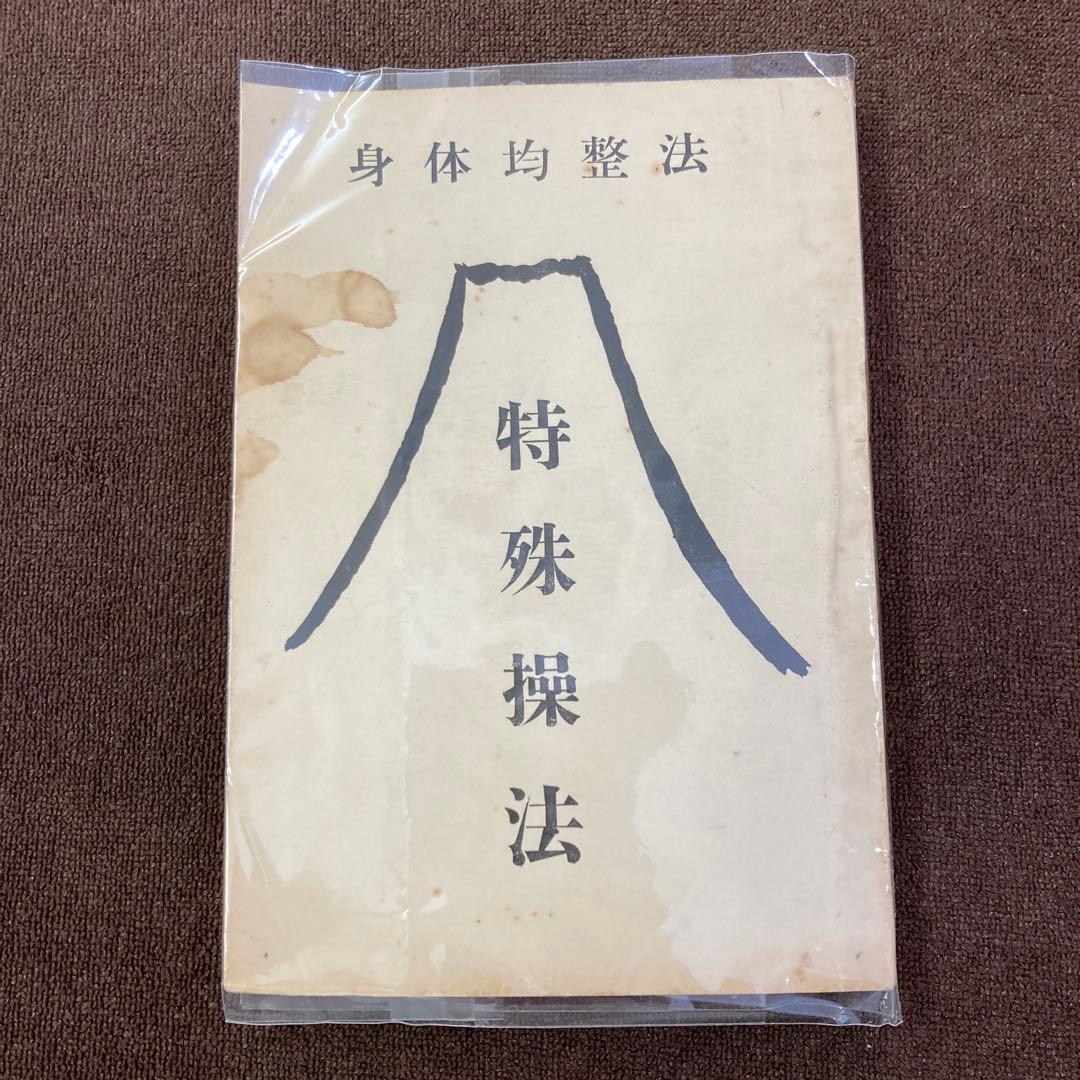 身体均整法
特殊操法